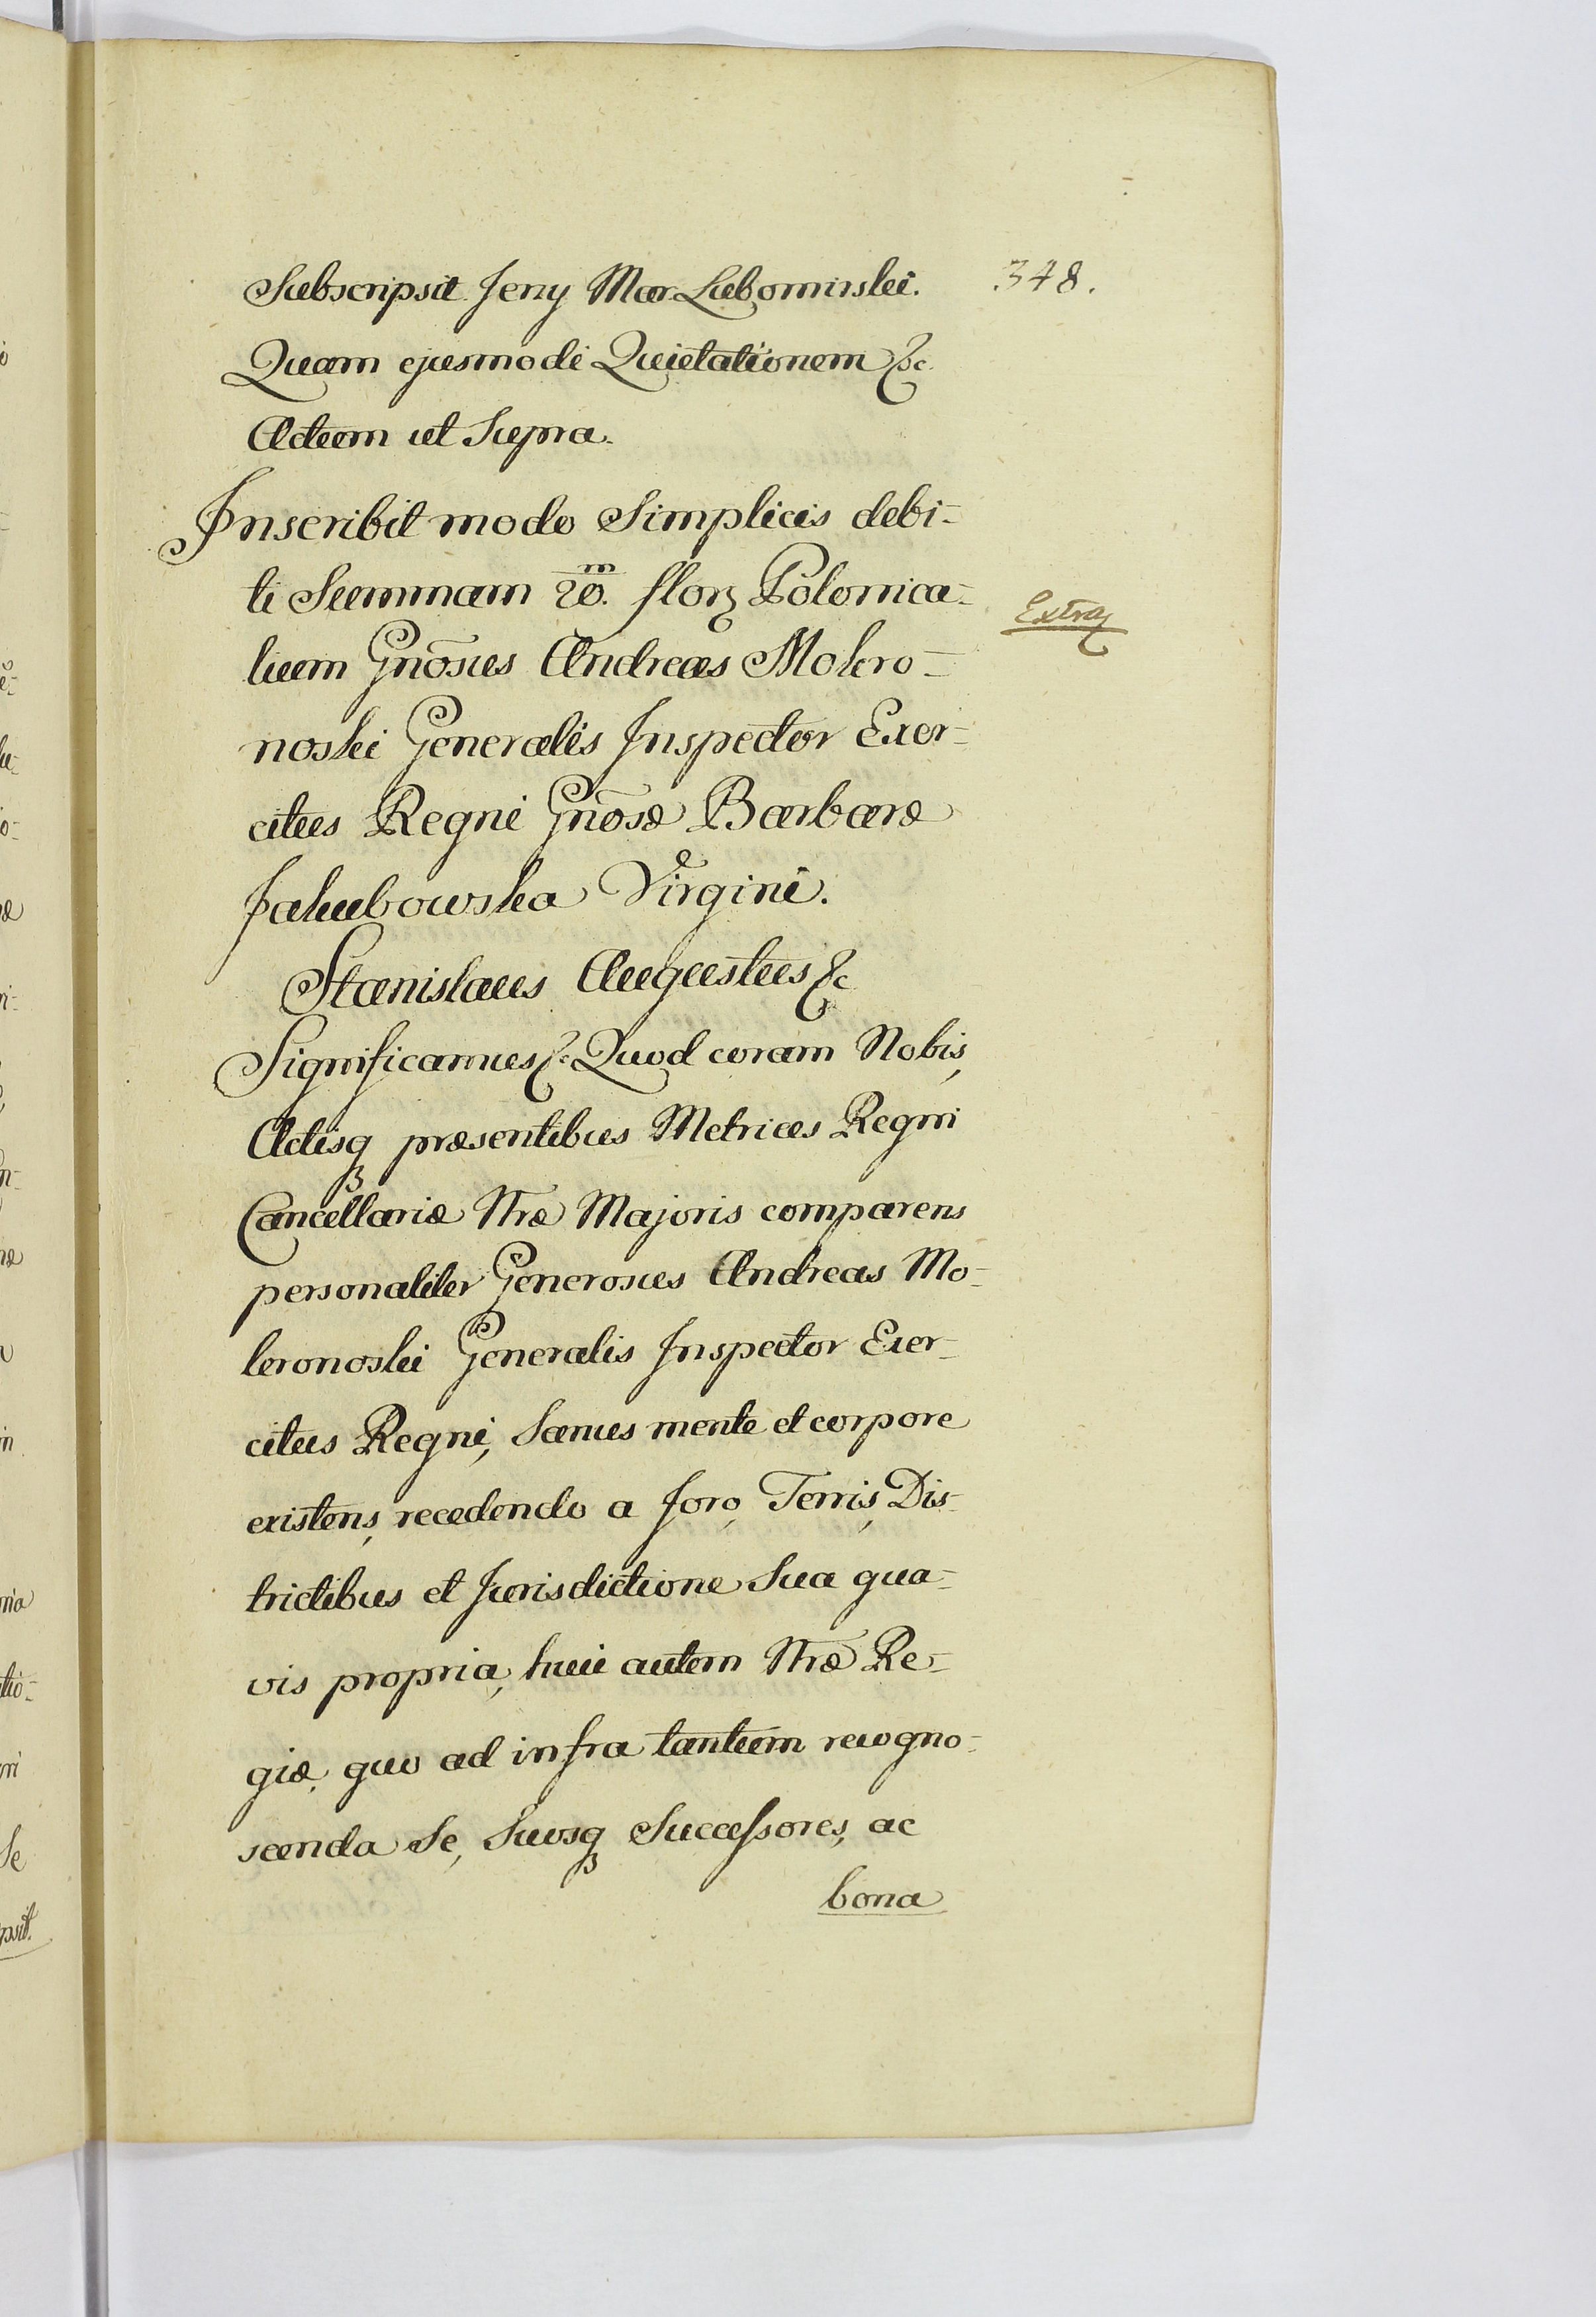 Subscripsit Jerzy Mar. Lubomirski. 348.
Quam ejusmodi Quietationem &c.
Actum ut Supra.
Inscribit modo Simplicis debi-
ti Summam 20.m flor. Polonica-
lium Gnosus Andreas Mokro-
noski Generalis Inspector Exer-
citus Regni Gnosæ Barbaræ
Jakubowska Virgini.
Extra
Stanislaus Augustus &c
Significamus &c Quod coram Nobis,
Actisq præsentibus Metrices Regni
Cancellariæ Nræ Majoris comparens
personaliter Generosus Andreas Mo-
kronoski Generalis Inspector Exer-
citus Regni, Sanus mente et corpore
existens, recedendo a foro, Terris, Dis-
trictibus et Jurisdictione Sua qua-
vis propria, huic autem Nræ Re-
giæ, quo ad infra tantum recogno-
scenda Se, Suosq Successores, ac
bona